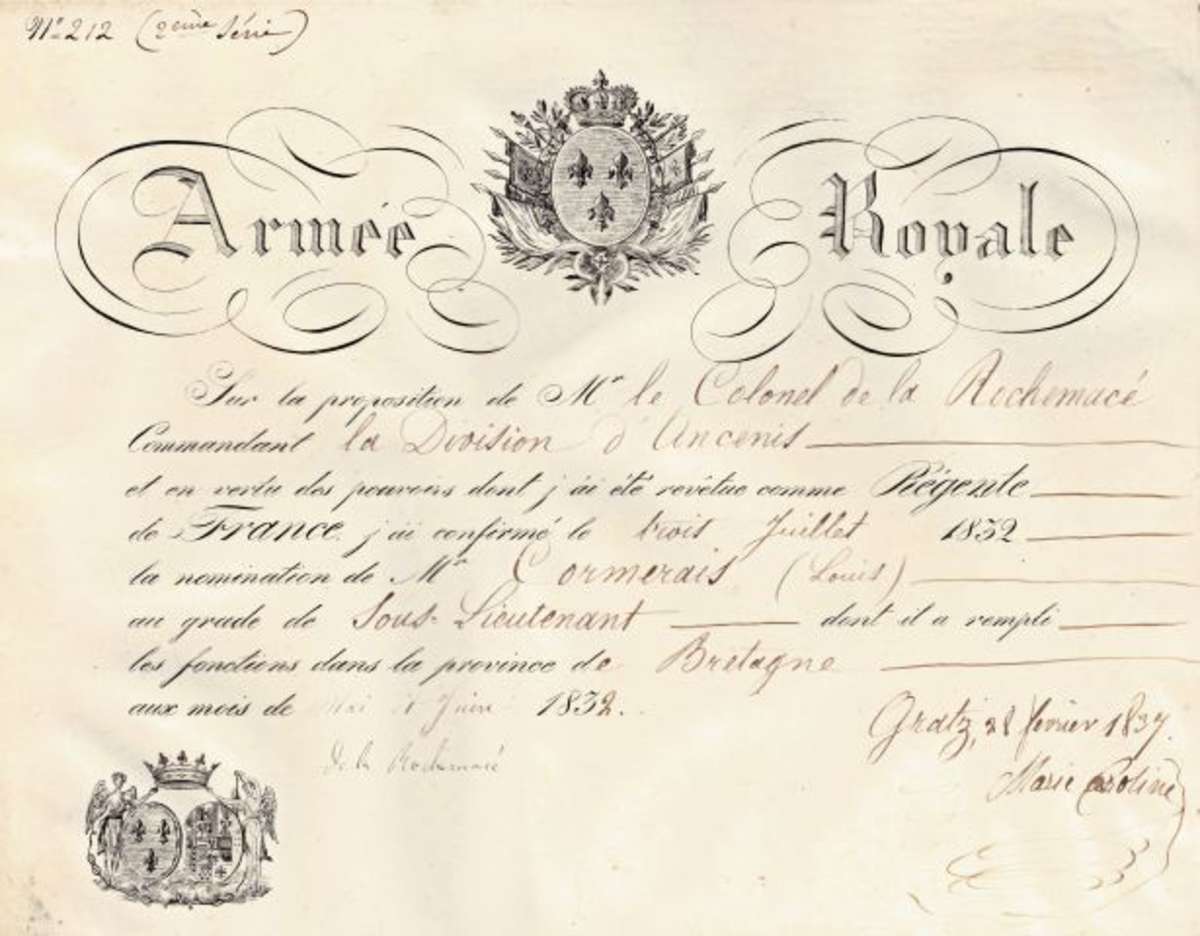 Nº 212 (2ème Série)
Armée Royale
Sur la proposition de Mr le Colonel de la Rochemacé
Commandant la Division d'Ancenis
et en vertu des pouvoirs dont j'ai été revêtue comme Régente
de France, j'ai confirmé le trois Juillet 1832
la nomination de Mr Cormerais (Louis)
au grade de Sous-Lieutenant dont il a rempli
les fonctions dans la province de Bretagne
aux mois de Mai et Juin 1832.
Gratz, 28 février 1837.
de la Rochemacé
Marie Caroline